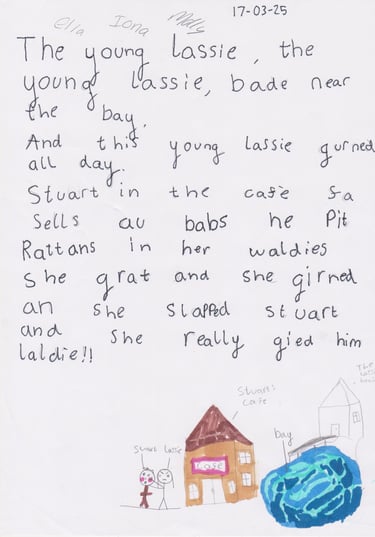 17-03-25
Ella Iona Molly
The young lassie, the
young lassie, bade near
the bay.
And this young lassie gurned
all day.
Stuart in the cafè fa
Sells au babs he Pit
Rattans in her waldies
She grat and she girned
an she slapped stuart
and she really gied him
laldie!!
Stuarts
cafe
The
bay
Stuart lassie
cafe